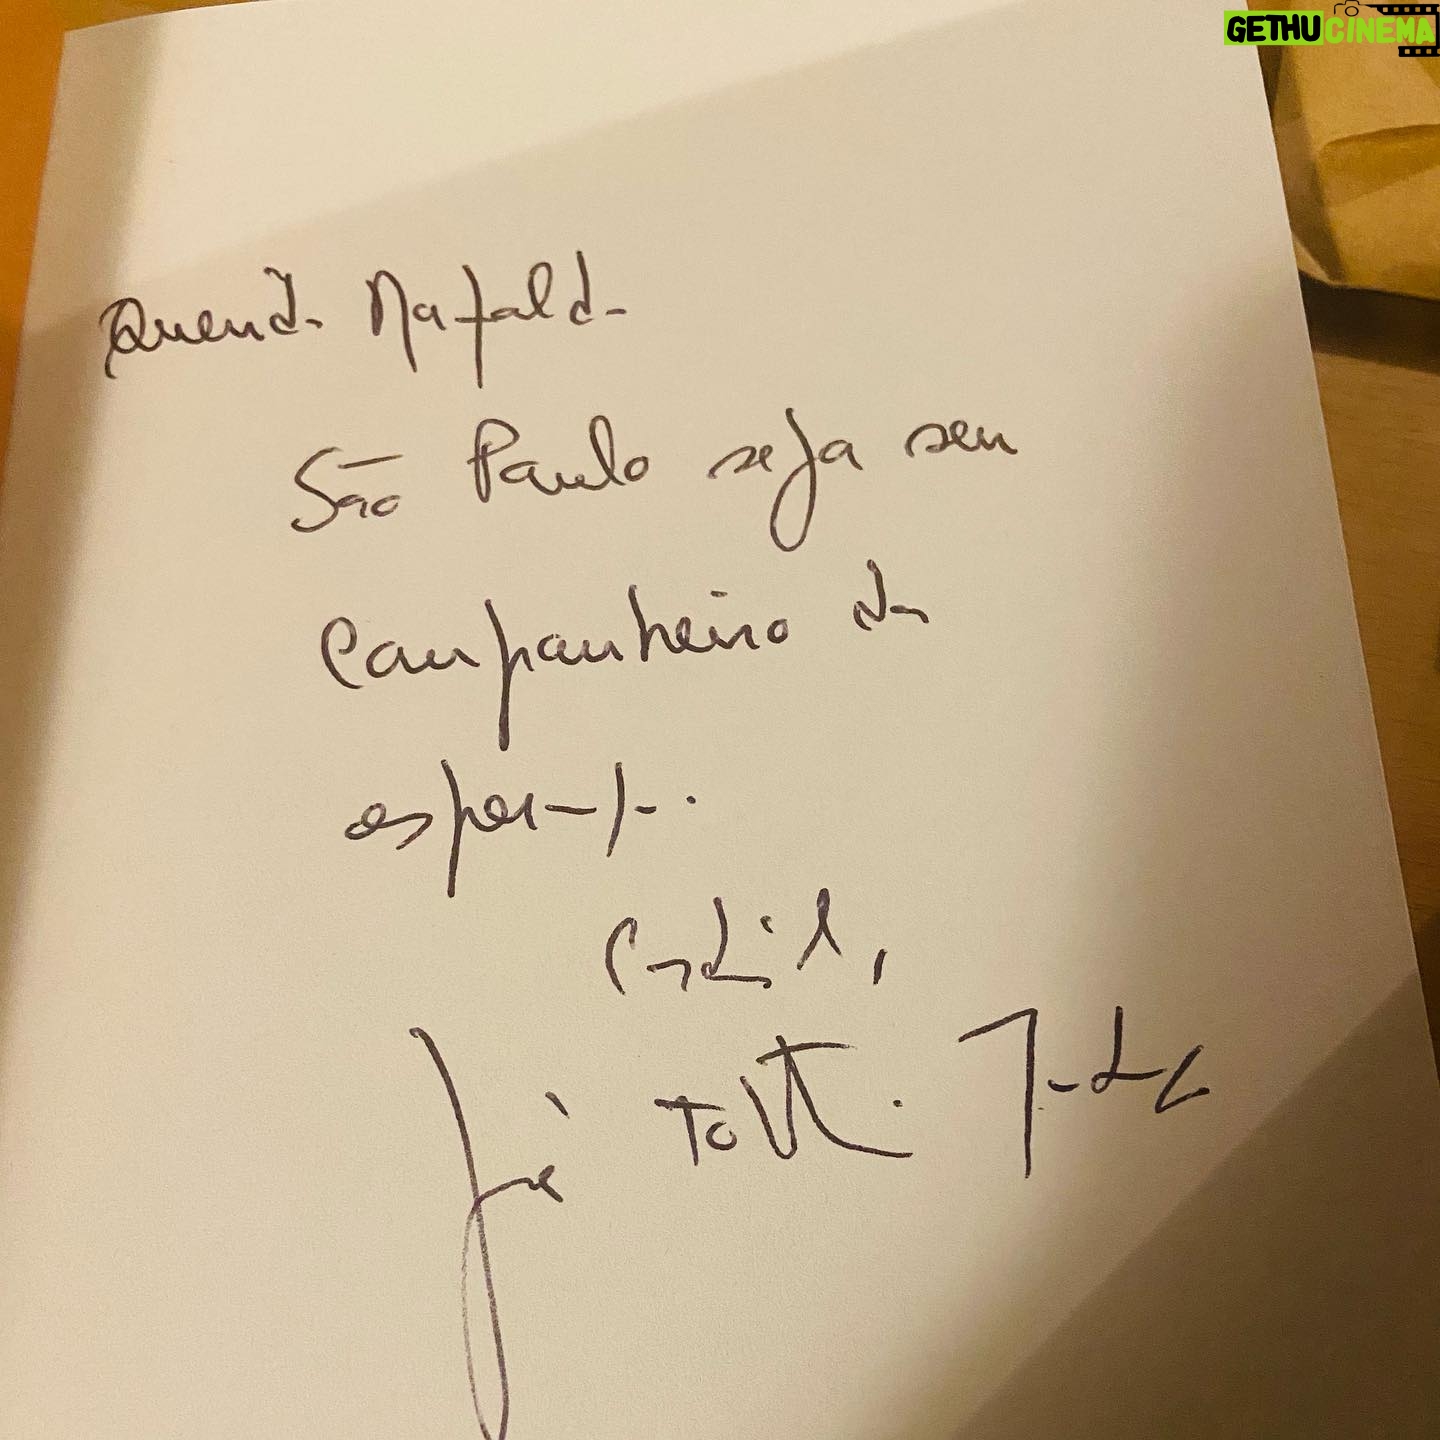 GETHUCINEMA
Querida Mafalda
São Paulo seja seu
Companheiro da
esperança.
Cordial,
José Tolentino Mendonça